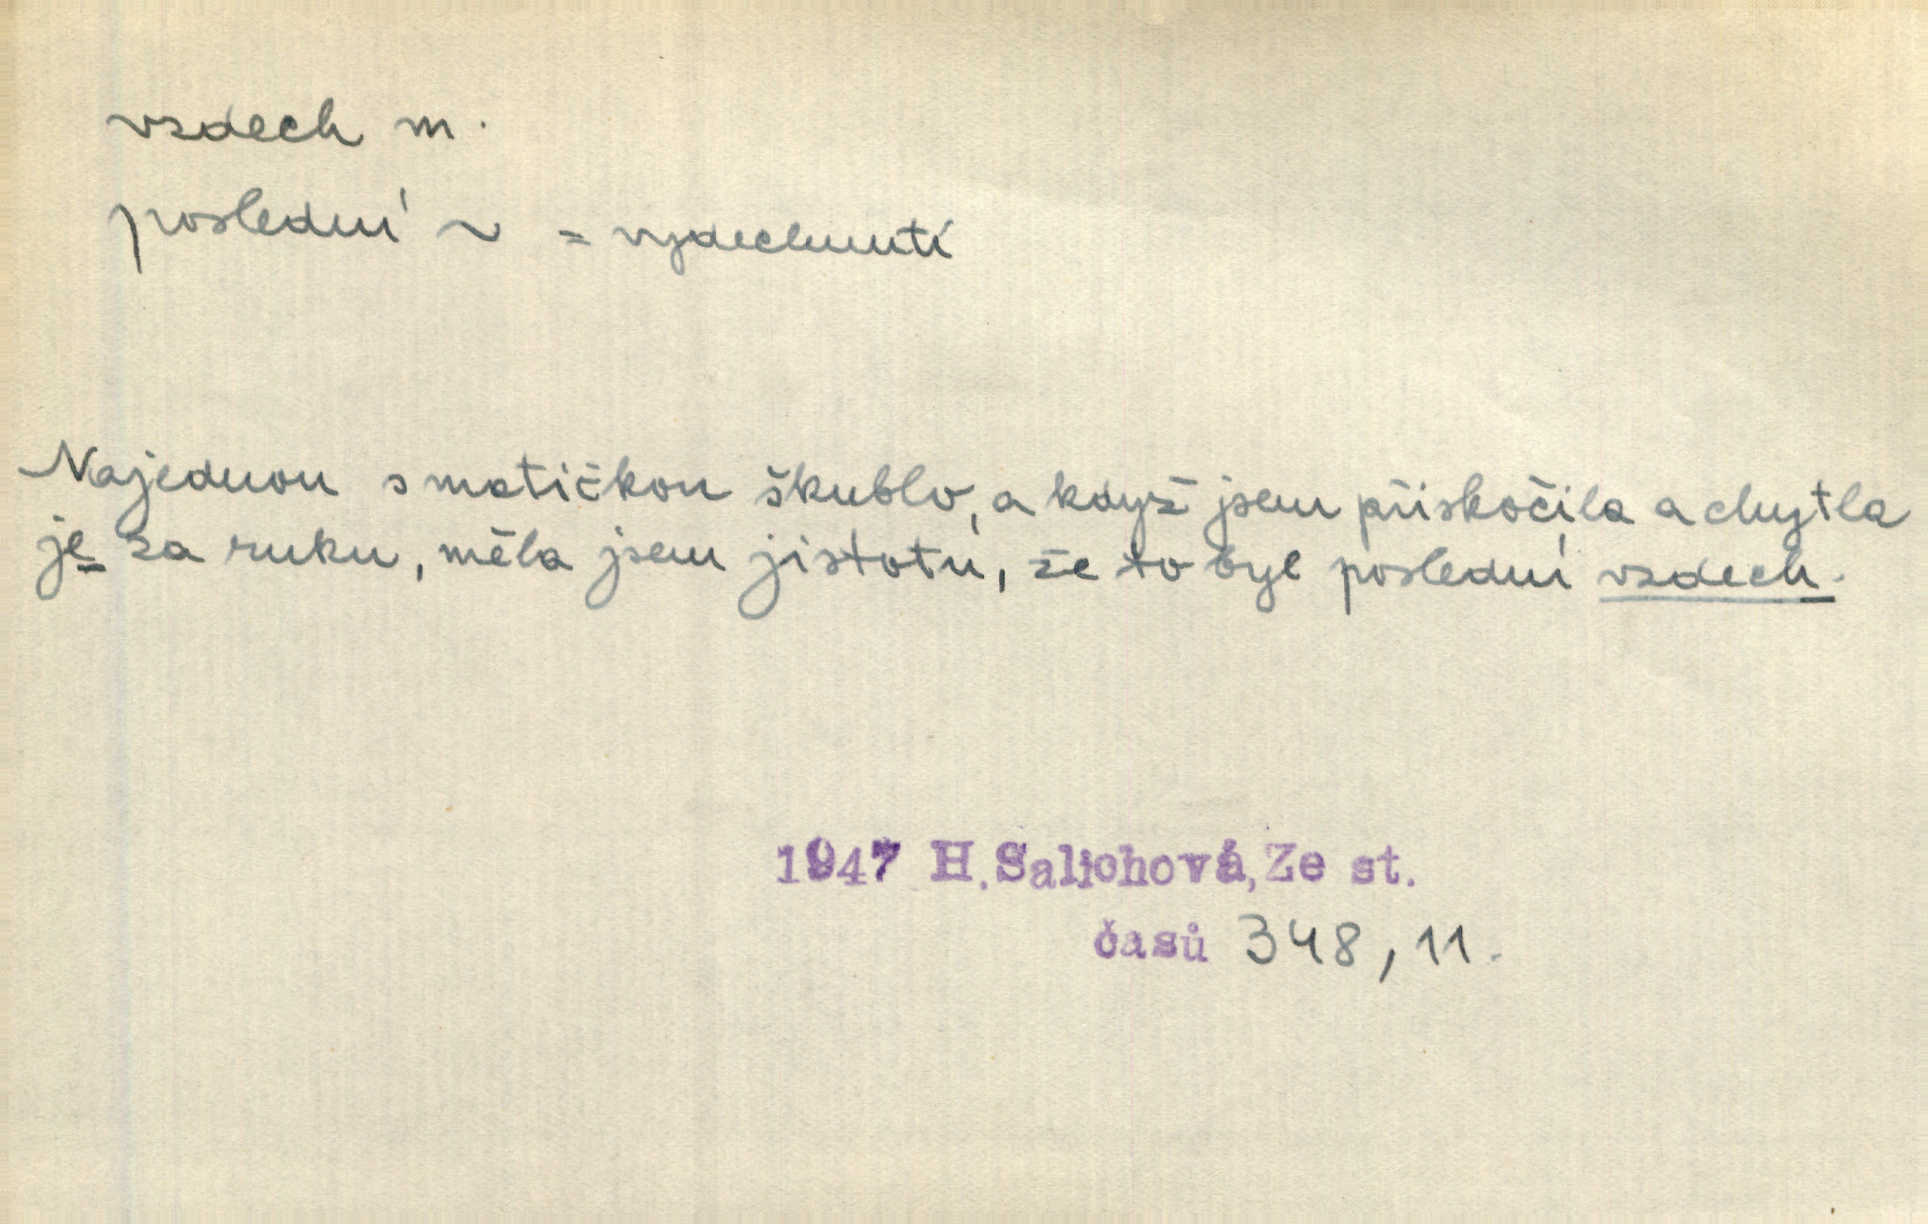 vzdech m.
poslední ~ = vydechnutí
Najednou s matičkou škublo, a když jsem přiskočila a chytla
je za ruku, měla jsem jistotu, že to byl poslední vzdech.
1947 H.Salichová,Ze st.
časů 348, 11.